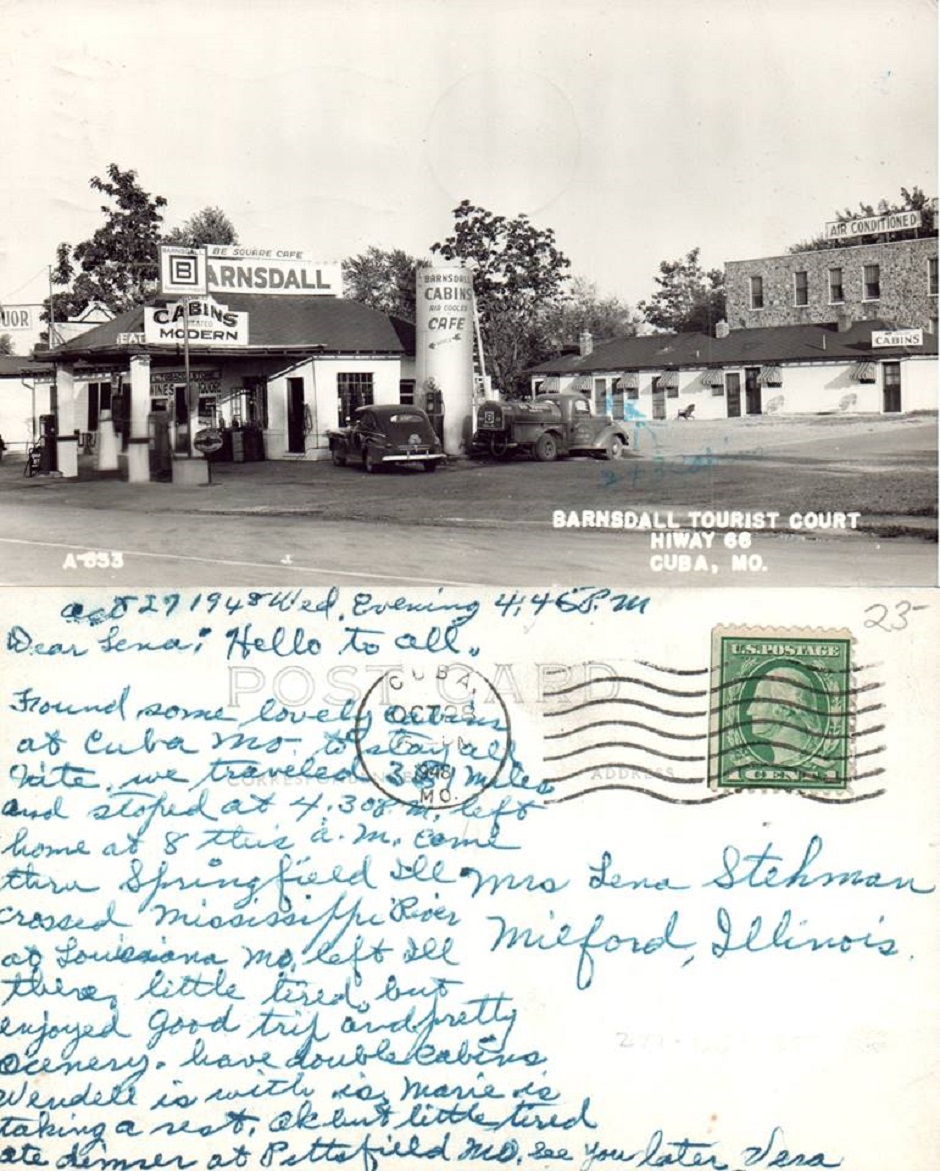 BE SQUARE CAFE
BARNSDALL
B
BARNSDALL
CABINS
MODERN
EAT
UOR
BARNSDALL
CABINS
AIR COOLED
CAFE
AIR CONDITIONED
CABINS
BARNSDALL TOURIST COURT
HIWAY 66
CUBA, MO.
A-653
Oct 27 1948 Wed. Evening 4,45 P.M
23-
Dear Lena; Hello to all.
U.S. POSTAGE
POST CARD
CUBA,
OCT 28
1948
MO.
CORRESPONDENCE
ADDRESS
Found some lovely cabins
at Cuba Mo. to stay all
nite, we traveled miles
and stoped at 4.30 P.M. left
home at 8 this a.m. come
thru Springfield Ill
crossed Mississippi River
at Louisiana Mo, left Ill
there, little tired, but
enjoyed good trip and pretty
scenery. have double cabins
Wendell is with is, Marie is
taking a rest, ok but little tired
ate dinner at Pittsfield Mo. see you later Vera
Mrs Lena Stehman
Milford, Illinois.